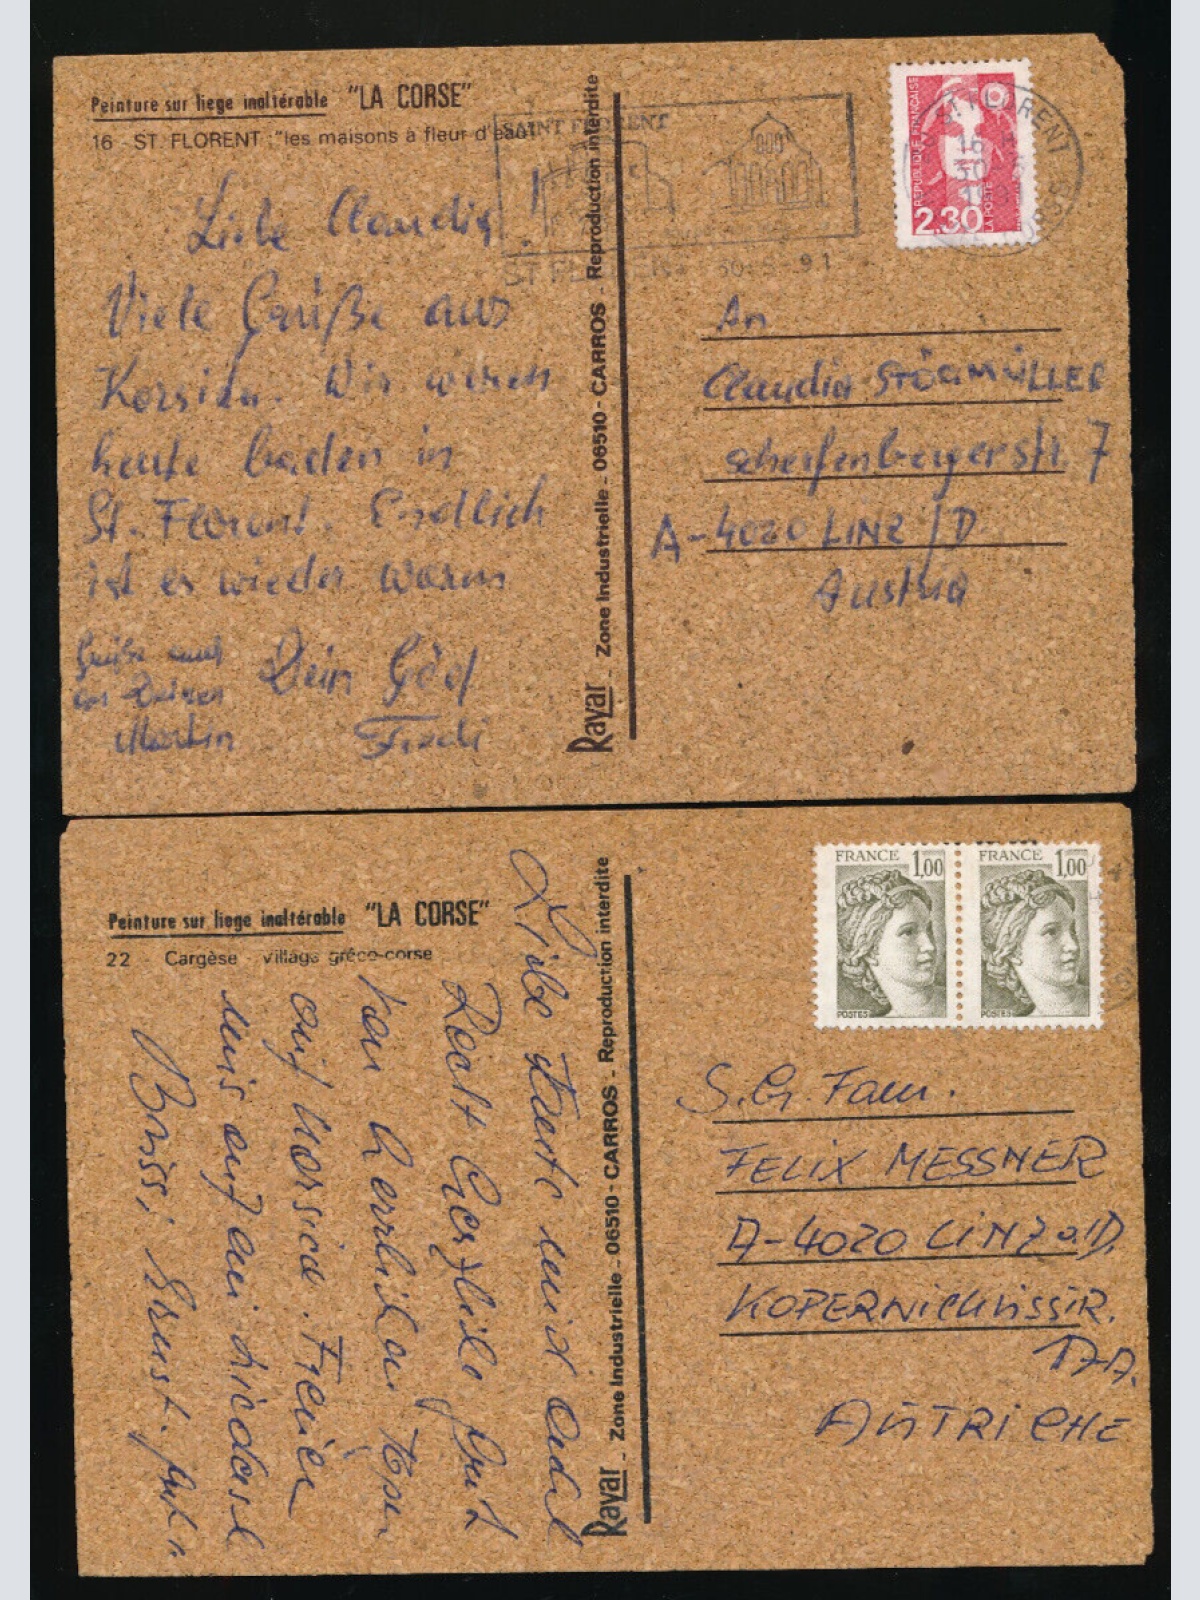 Peinture sur liege inaltérable "LA CORSE"
16 - ST. FLORENT : "les maisons à fleur d'eau"
SAINT FLORENT
ST FLORENT 30-5-91
REPUBLIQUE FRANÇAISE
2,30
LA POSTE
ST FLORENT
16
30
Liebe Claudia!
Viele Grüße aus
Korsika. Wir waren
heute baden in
St. Florent. Endlich
ist es wieder warm
Grüße auch
an Deinen
Martin
Dein Göd
An
Claudia STÖGMÜLLER
Scherfenbergerstr. 7
A-4020 LINZ /D.
Austria
Rayar - Zone Industrielle - 06510 - CARROS - Reproduction interdite
Peinture sur liege inaltérable "LA CORSE"
22 - Cargèse - village gréco-corse
Liebe Tante und Onkel
Recht Herzliche
von herrlichen
auf Korsica. Freuen
uns auf ein Wiederseh
Bussi, Ernst.
FRANCE 1,00
POSTES
FRANCE 1,00
POSTES
S.G. Fam.
FELIX MESSNER
A-4020 LINZ a.D.
KOPERNICKUSSTR.
17A.
AUTRICHE
Rayar - Zone Industrielle - 06510 - CARROS - Reproduction interdite